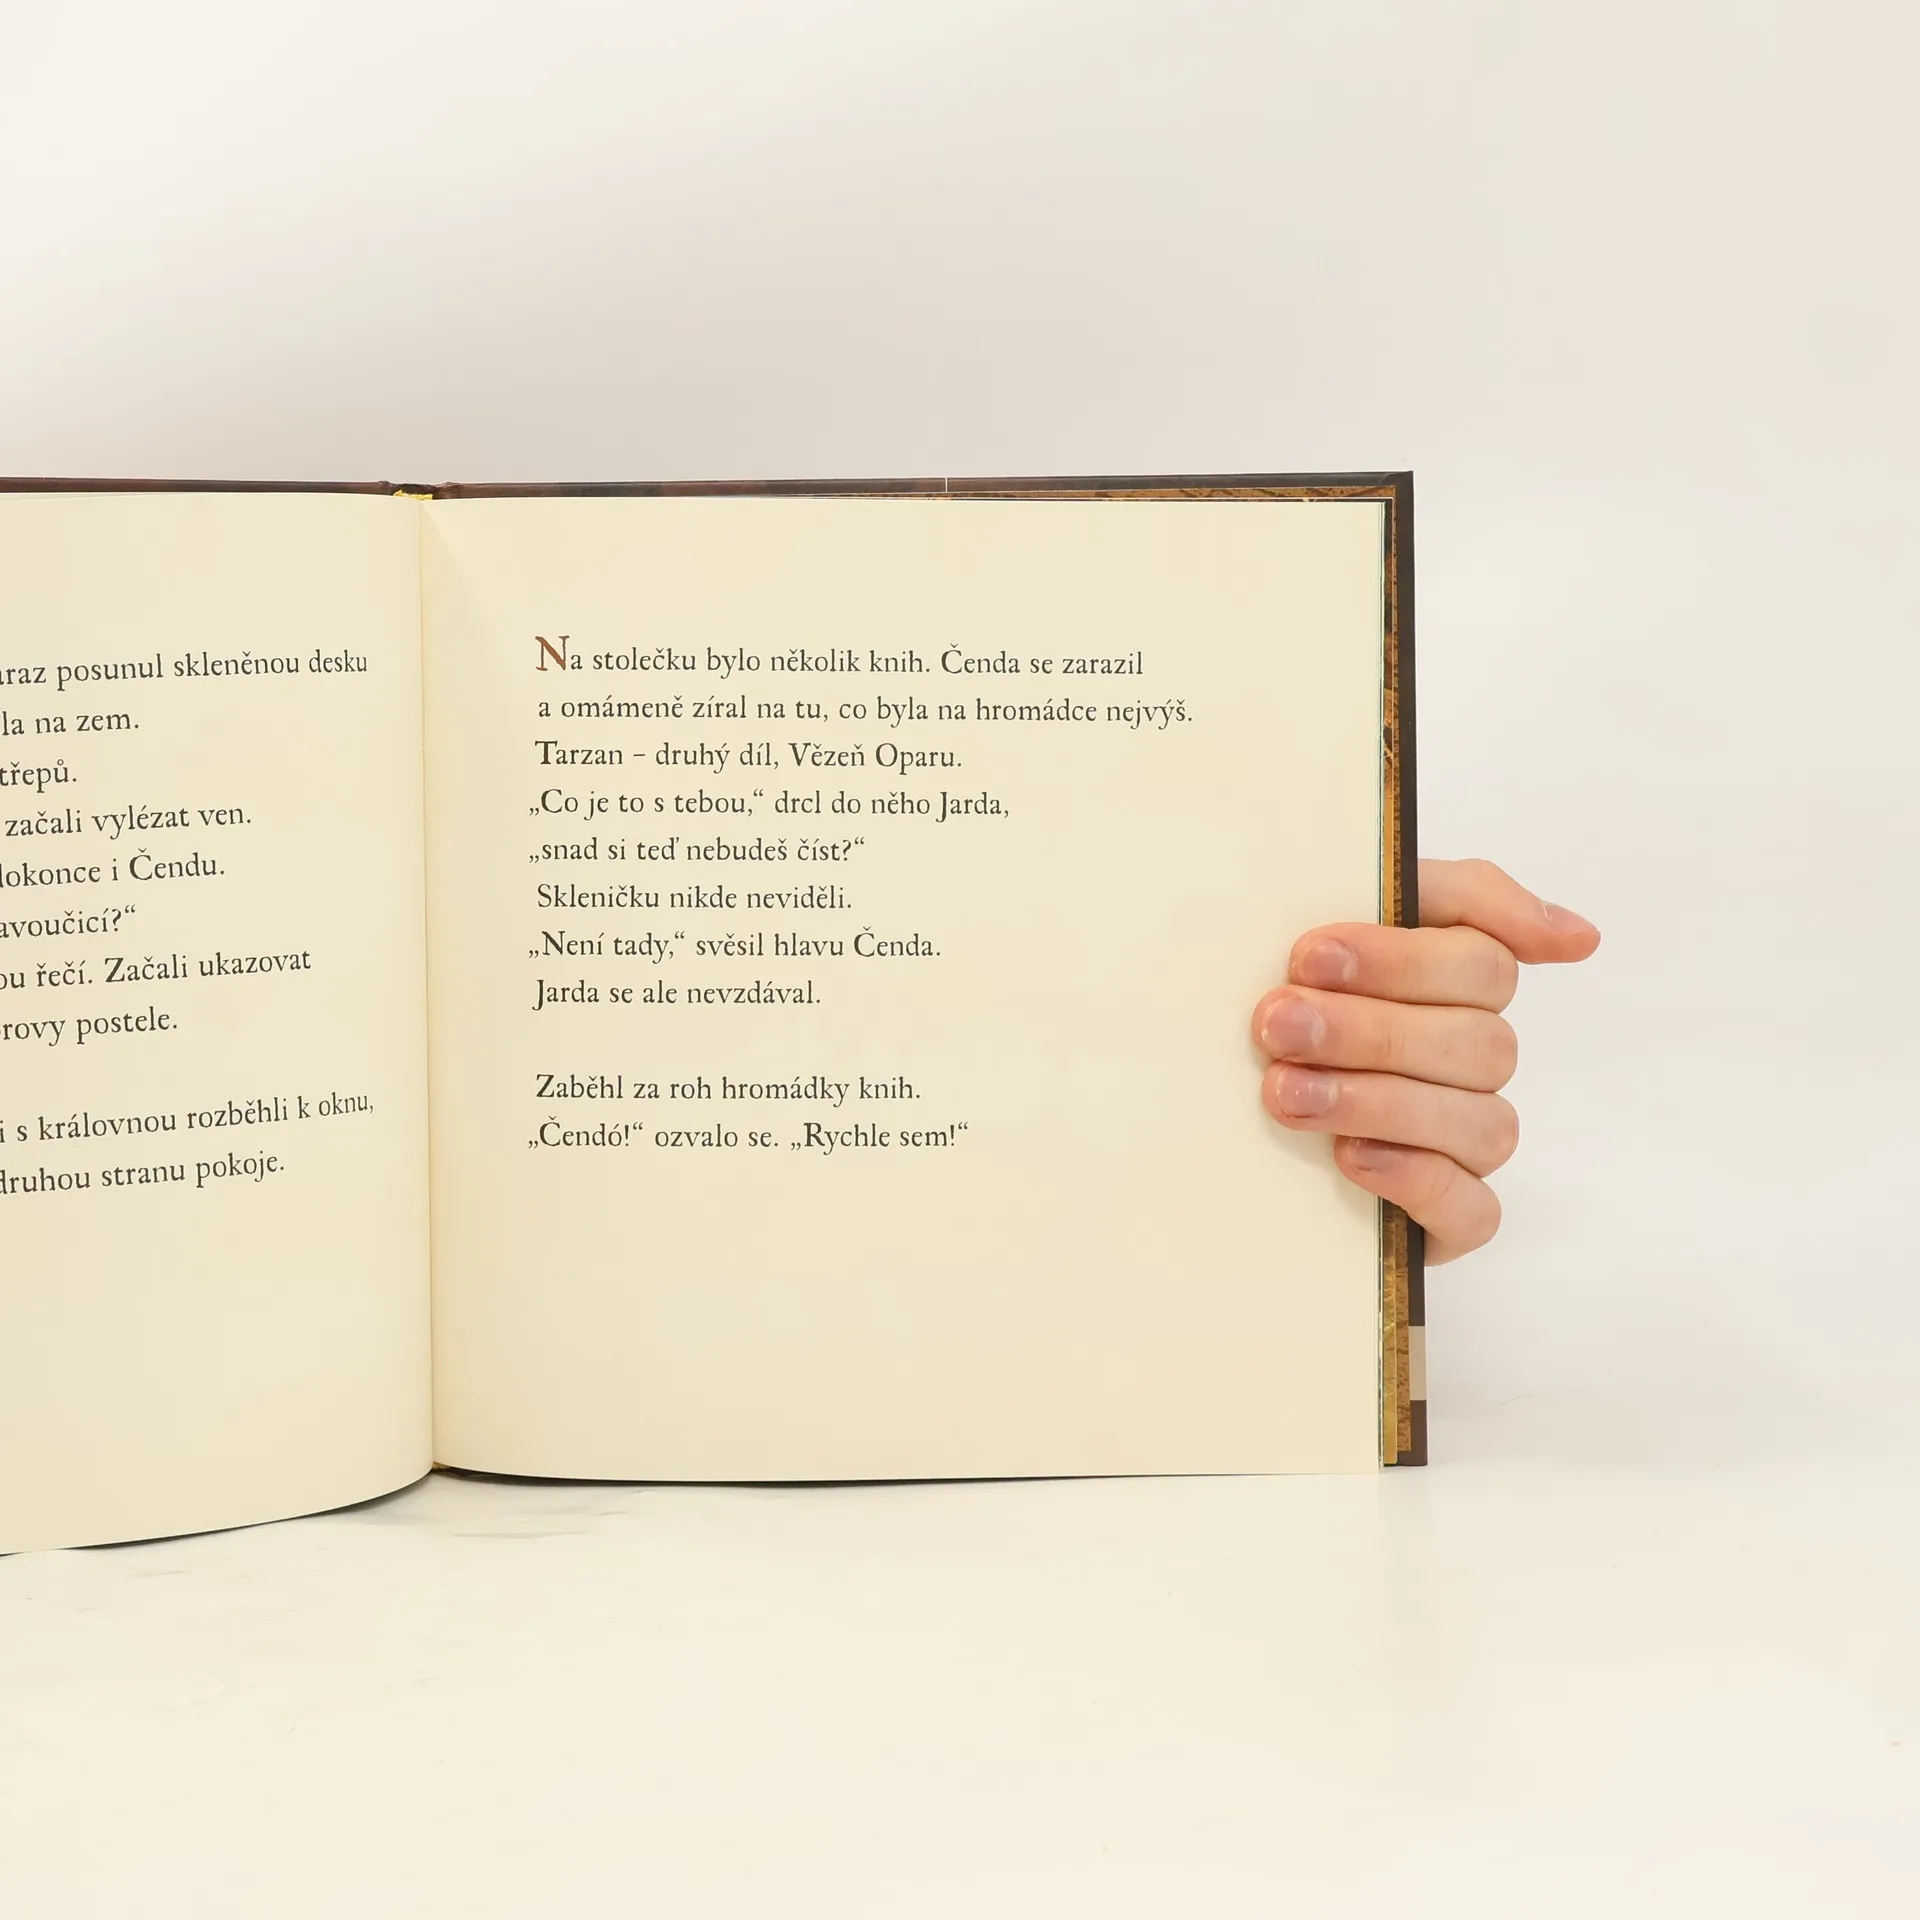 posunul skleněnou desku
na zem.
začali vylézat ven.
i Čendu.
řečí. Začali ukazovat
postele.
s královnou rozběhli k oknu,
stranu pokoje.
Na stolečku bylo několik knih. Čenda se zarazil
a omámeně zíral na tu, co byla na hromádce nejvýš.
Tarzan – druhý díl, Vězeň Oparu.
„Co je to s tebou,“ drcl do něho Jarda,
„snad si teď nebudeš číst?“
Skleničku nikde neviděli.
„Není tady,“ svěsil hlavu Čenda.
Jarda se ale nevzdával.
Zaběhl za roh hromádky knih.
„Čendó!“ ozvalo se. „Rychle sem!“